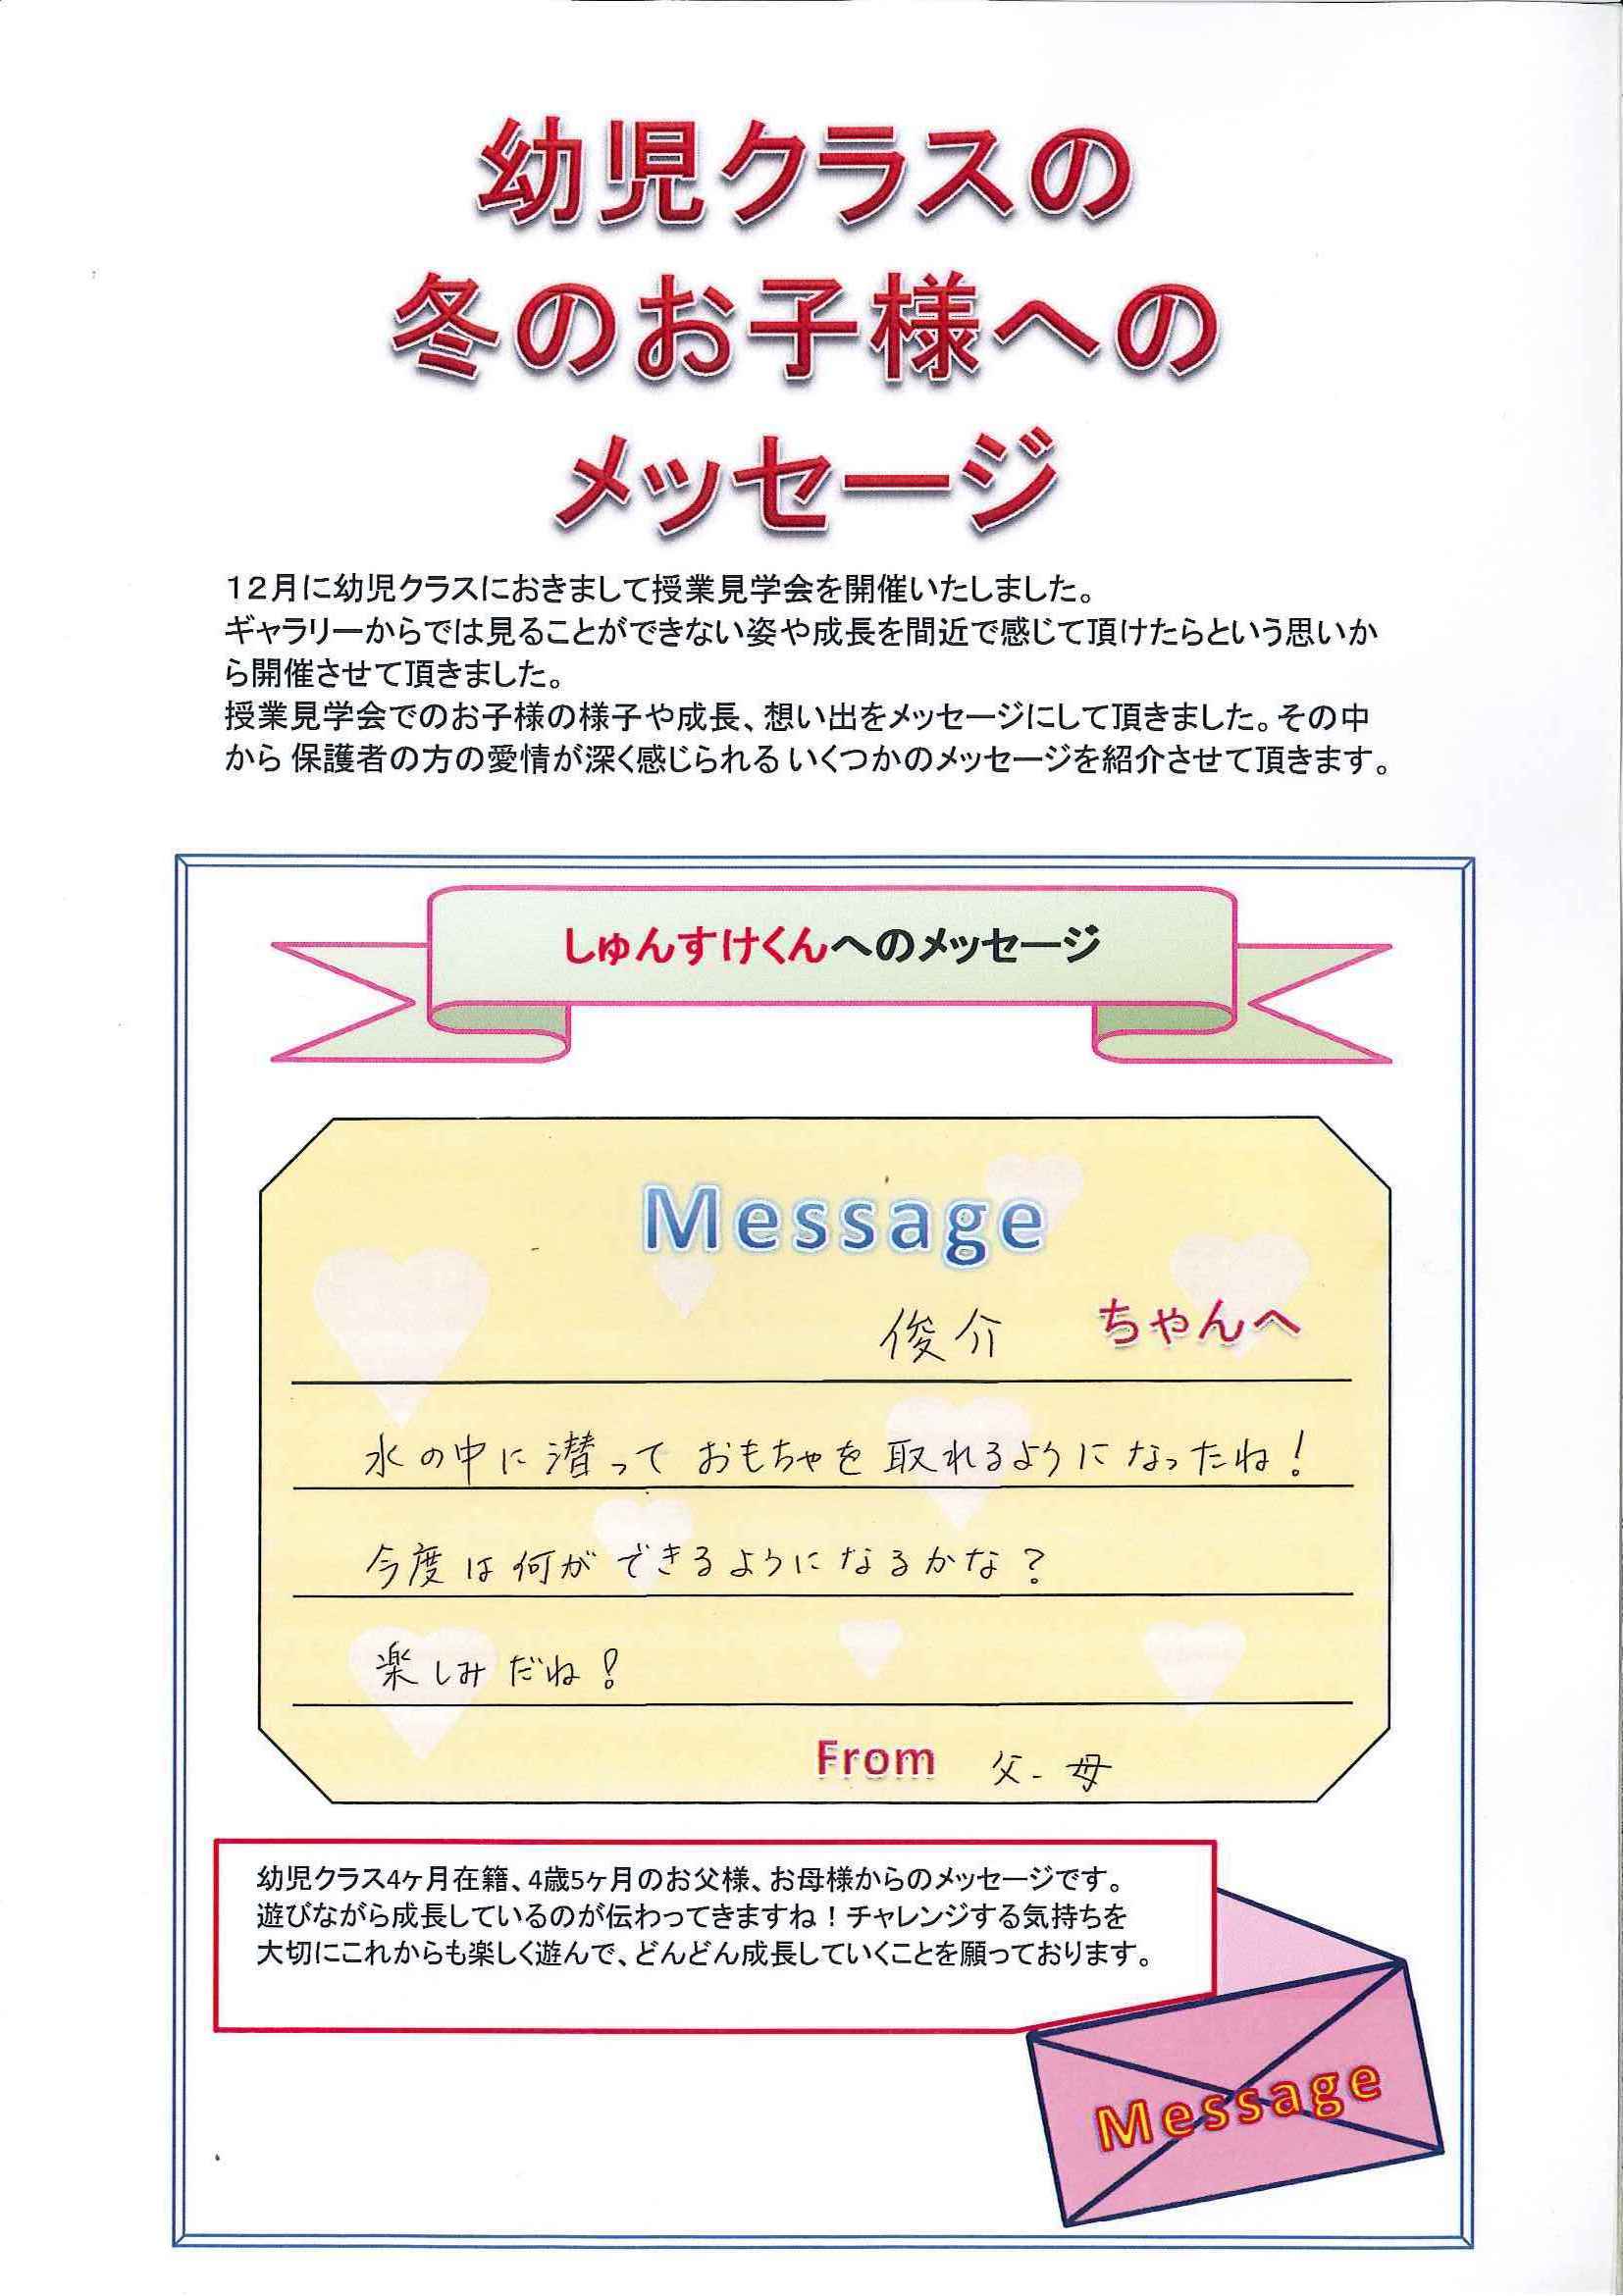 幼児クラスの
冬のお子様への
メッセージ
12月に幼児クラスにおきまして授業見学会を開催いたしました。
ギャラリーからでは見ることができない姿や成長を間近で感じて頂けたらという思いか
ら開催させて頂きました。
授業見学会でのお子様の様子や成長、想い出をメッセージにして頂きました。その中
から 保護者の方の愛情が深く感じられる いくつかのメッセージを紹介させて頂きます。
しゅんすけくんへのメッセージ
Message
俊介 ちゃんへ
水の中に潜って おもちゃを 取れるように なったね!
今度は何が できるようになるかな?
楽しみだね!
From 父・母
幼児クラス4ヶ月在籍、4歳5ヶ月のお父様、お母様からのメッセージです。
遊びながら成長しているのが伝わってきますね!チャレンジする気持ちを
大切にこれからも楽しく遊んで、どんどん成長していくことを願っております。
Message